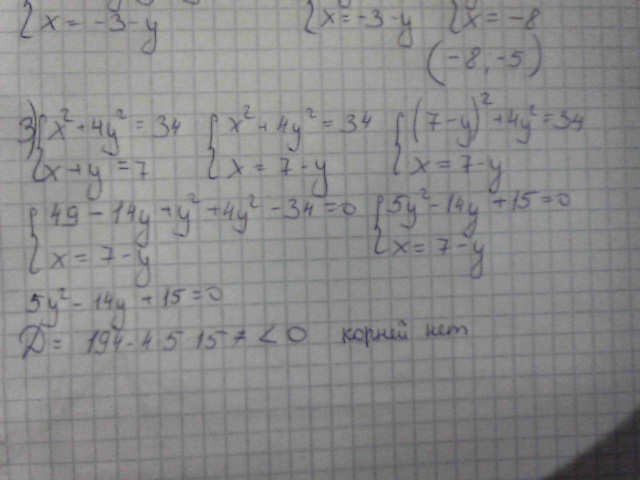 {x = -3-y {x = -3-y {x = -8
(-8; -5)
3) {x² + 4y² = 34 {x² + 4y² = 34 {(7-y)² + 4y² = 34
{x + y = 7 {x = 7-y {x = 7-y
{49 - 14y + y² + 4y² - 34 = 0 {5y² - 14y + 15 = 0
{x = 7-y {x = 7-y
5y² - 14y + 15 = 0
D = 194 - 4 5 15 7 < 0 корней нет